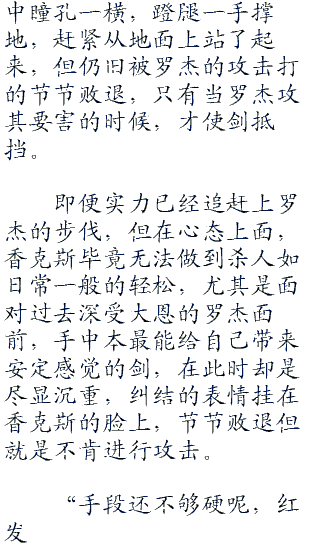 中瞳孔一横，蹬腿一手撑
地，赶紧从地面上站了起
来，但仍旧被罗杰的攻击打
的节节败退，只有当罗杰攻
其要害的时候，才使剑抵
挡。
即便实力已经追赶上罗
杰的步伐，但在心态上面，
香克斯毕竟无法做到杀人如
日常一般的轻松，尤其是面
对过去深受大恩的罗杰面
前，手中本最能给自己带来
安定感觉的剑，在此时却是
尽显沉重，纠结的表情挂在
香克斯的脸上，节节败退但
就是不肯进行攻击。
“手段还不够硬呢，红
发